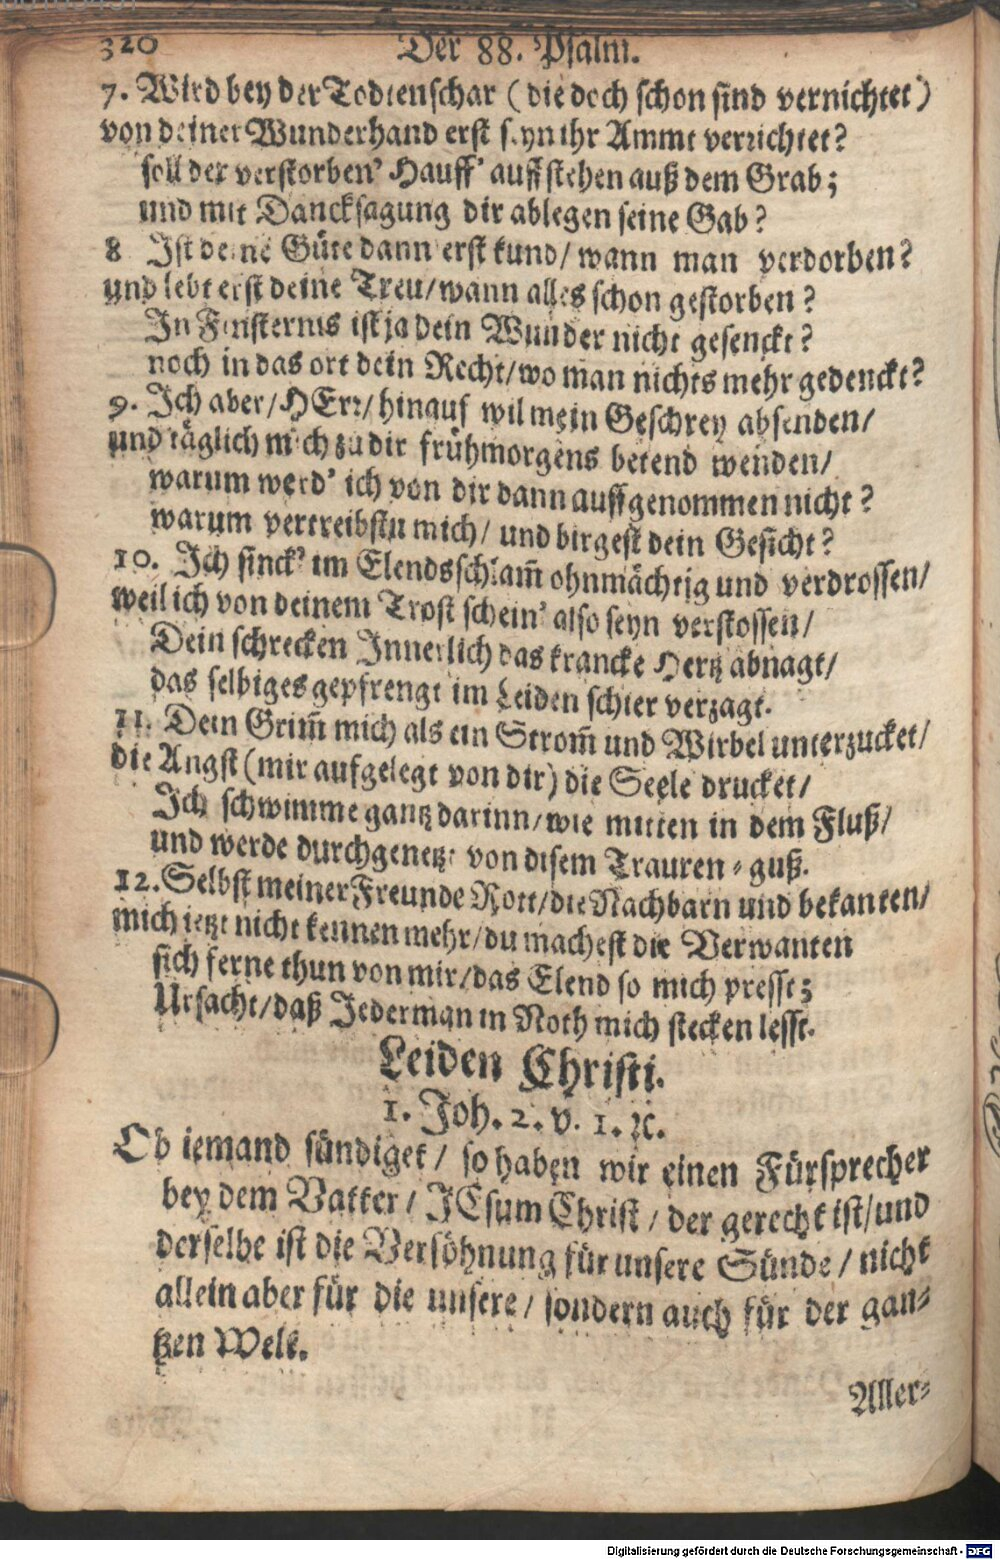 320 Der 88. Psalm.
7. Wird bey der Todtenschar (die doch schon sind vernichtet)
von deiner Wunderhand erst seyn ihr Ammt verrichtet?
soll der verstorben' Hauff' aufstehen auß dem Grab;
und mit Dancksagung dir ablegen seine Gab?
8 Ist deine Güte dann erst kund/ wann man verdorben?
und lebt erst deine Treu/wann alles schon gestorben?
In Finsternis ist ja dein Wunder nicht gesenckt?
noch in das ort dein Recht/wo man nichts mehr gedenckt?
9. Ich aber/HErr/hinauf wil mein Geschrey absenden/
und täglich mich zu dir frühmorgens betend wenden/
warum werd' ich von dir dann auffgenommen nicht?
warum vertreibstu mich/ und birgest dein Gesicht?
10. Ich sinck' im Elendsschlam̃ ohnmächtig und verdrossen/
weil ich von deinem Trost schein' also seyn verstossen/
Dein schrecken Innerlich das krancke Hertz abnagt/
das selbiges gepfrengt im Leiden schier verzagt.
11. Dein Grim̃ mich als ein Strom̃ und Wirbel unterzucket/
die Angst (mir aufgelegt von dir) die Seele drucket/
Ich schwimme gantz darinn/wie mitten in dem Fluß/
und werde durchgenetzt von disem Trauren-guß.
12. Selbst meiner Freunde Rott/die Nachbarn und bekanten/
mich ietzt nicht kennen mehr/du machest die Verwanten
sich ferne thun von mir/das Elend so mich presst;
Ursacht/daß Jederman in Noth mich stecken lesst.
Leiden Christi.
1. Joh. 2. v. 1. ꝛc.
Ob iemand sündiget/ so haben wir einen Fürsprecher
bey dem Vatter/ JEsum Christ/ der gerecht ist/und
derselbe ist die Versöhnung für unsere Sünde/ nicht
allein aber für die unsere/ sondern auch für der gan-
tzen Welt.
Aller-
Digitalisierung gefördert durch die Deutsche Forschungsgemeinschaft - DFG